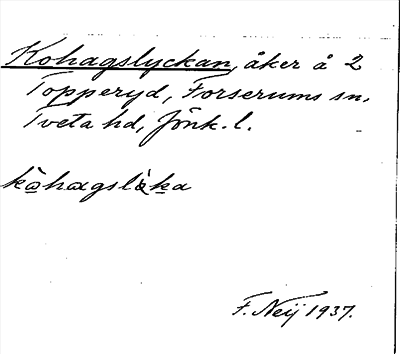 Kohagslyckan, åker å 2
Topperyd, Forserums sn.
Tveta hd, Jönk. l.
F. Neij 1937.